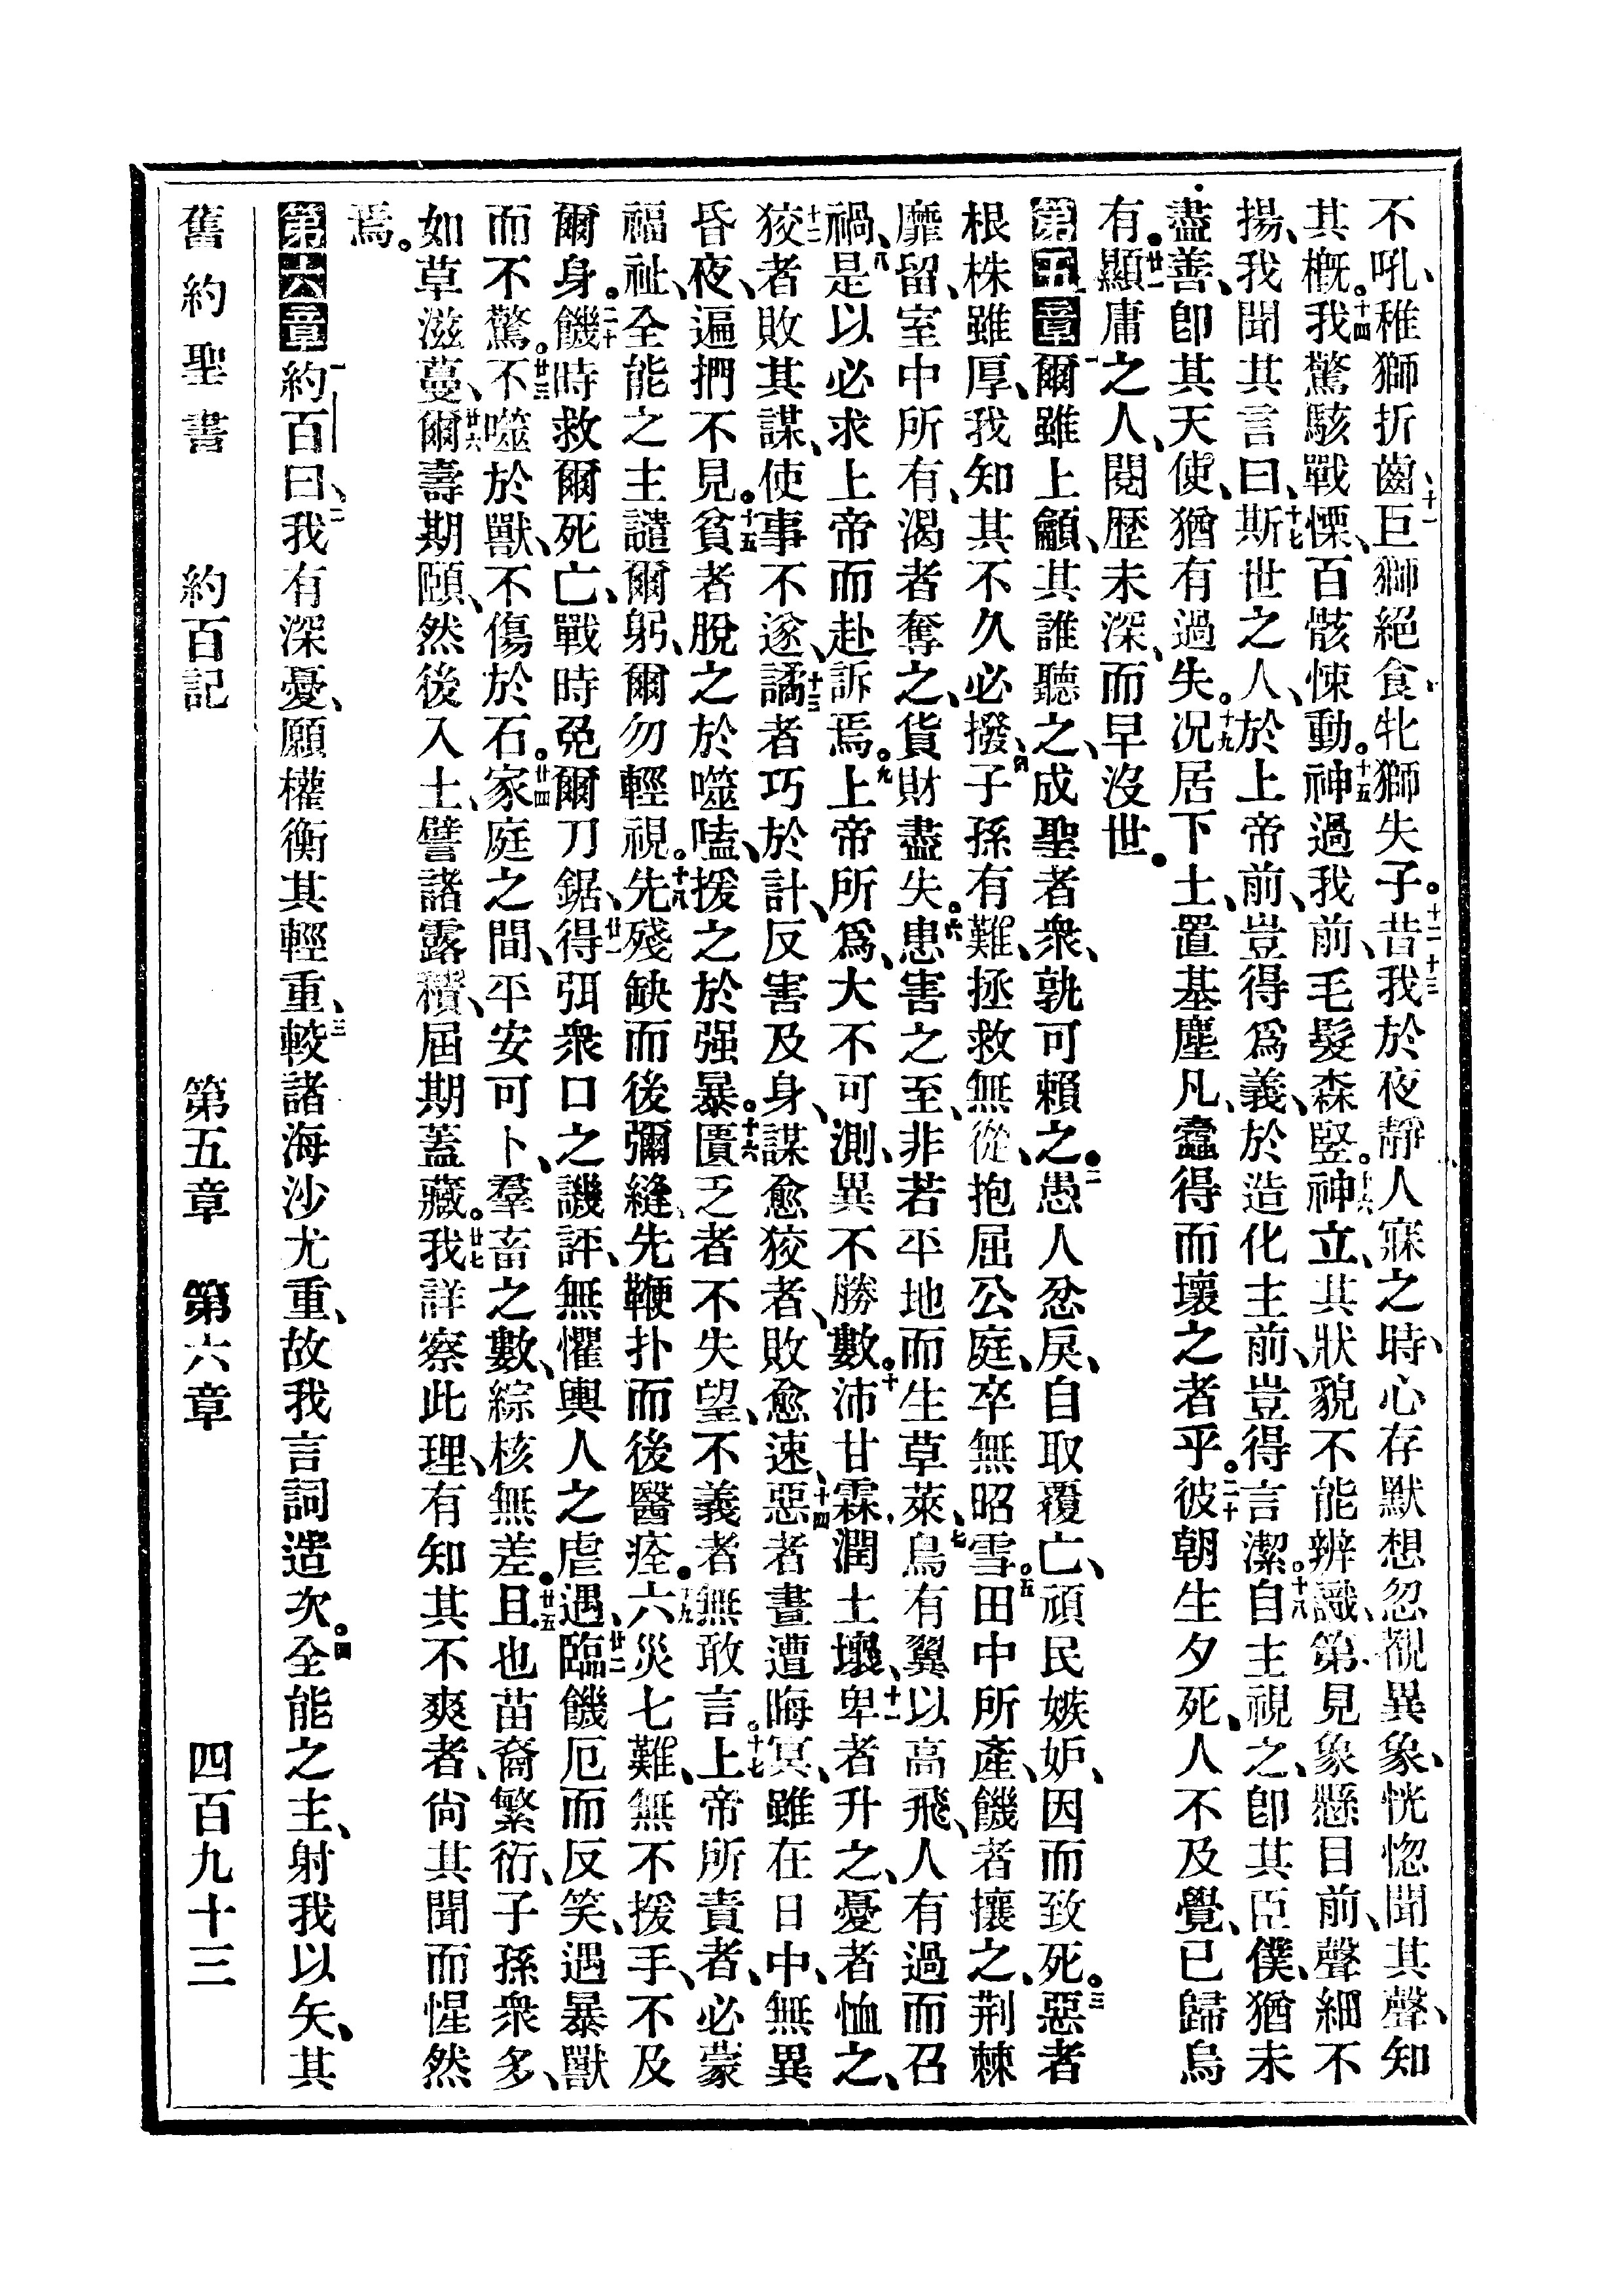 不吼、稚獅折齒、十一巨獅絕食、牝獅失子。十二十三昔我於夜靜人寐之時、心存默想、忽覩異象、恍惚聞其聲、知
其概。十四我驚駭戰慄、百骸悚動。十五神過我前、毛髮森竪。十六神立、其狀貌不能辨識、第見象懸目前、聲細不
揚、我聞其言曰、十七斯世之人、於上帝前、豈得爲義、於造化主前、豈得言潔。十八自主視之、卽其臣僕、猶未
盡善、卽其天使、猶有過失。十九况居下土、置基塵凡、蠧得而壞之者乎。二十彼朝生夕死、人不及覺、已歸烏
有。廿一顯庸之人、閱歷未深、而早沒世。
第五章 一爾雖上籲、其誰聽之、成聖者衆、孰可賴之。二愚人忿戾、自取覆亡、頑民嫉妒、因而致死。三惡者
根株雖厚、我知其不久必撥、四子孫有難、拯救無從、抱屈公庭、卒無昭雪。五田中所產、饑者攘之、荆棘
靡留、室中所有、渴者奪之、貨財盡失。六患害之至、非若平地而生草萊、七鳥有翼以高飛、人有過而召
禍、八是以必求上帝而赴訴焉。九上帝所爲、大不可測、異不勝數。十沛甘霖、潤土壤、十一卑者升之、憂者恤之、
十二狡者敗其謀、使事不遂、十三譎者巧於計、反害及身、謀愈狡者、敗愈速、十四惡者晝遭晦冥、雖在日中、無異
昏夜、遍捫不見。十五貧者脫之於噬嗑、援之於强暴。十六匱乏者不失望、不義者無敢言。十七上帝所責者、必蒙
福祉、全能之主譴爾躬、爾勿輕視。十八先殘缺而後彌縫、先鞭扑而後醫痊。十九六災七難、無不援手、不及
爾身。二十饑時救爾死亡、戰時免爾刀鋸、廿一得弭衆口之譏評、無懼輿人之虐遇、廿二臨饑厄而反笑、遇暴獸
而不驚。廿三不噬於獸、不傷於石。廿四家庭之間、平安可卜、羣畜之數、綜核無差。廿五且也苗裔繁衍、子孫衆多、
如草滋蔓、廿六爾壽期頤、然後入土、譬諸露積、屆期蓋藏。廿七我詳察此理、有知其不爽者、尙其聞而惺然
焉。
第六章 一約百曰、二我有深憂、願權衡其輕重、三較諸海沙尤重、故我言詞造次。四全能之主、射我以矢、其
舊約聖書 約百記 第五章 第六章 四百九十三